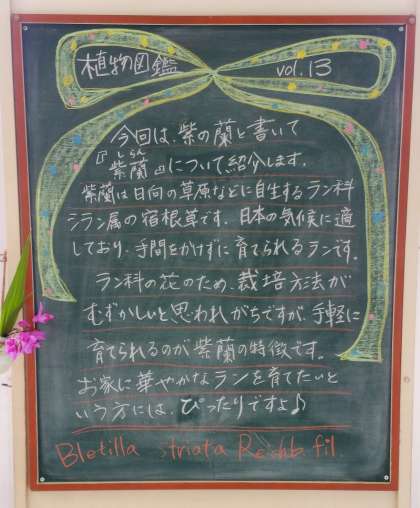 植物図鑑 vol.13
今回は、紫の蘭と書いて
しらん
『紫蘭』について紹介します。
紫蘭は日向の草原などに自生するラン科
シラン属の宿根草です。日本の気候に適
しており、手間をかけずに育てられるランです。
ラン科の花のため、栽培方法が
むずかしいと思われがちですが、手軽に
育てられるのが紫蘭の特徴です。
お家に華やかなランを育てたいと
いう方には、ぴったりですよ♪
Bletilla striata Reichb. fil.